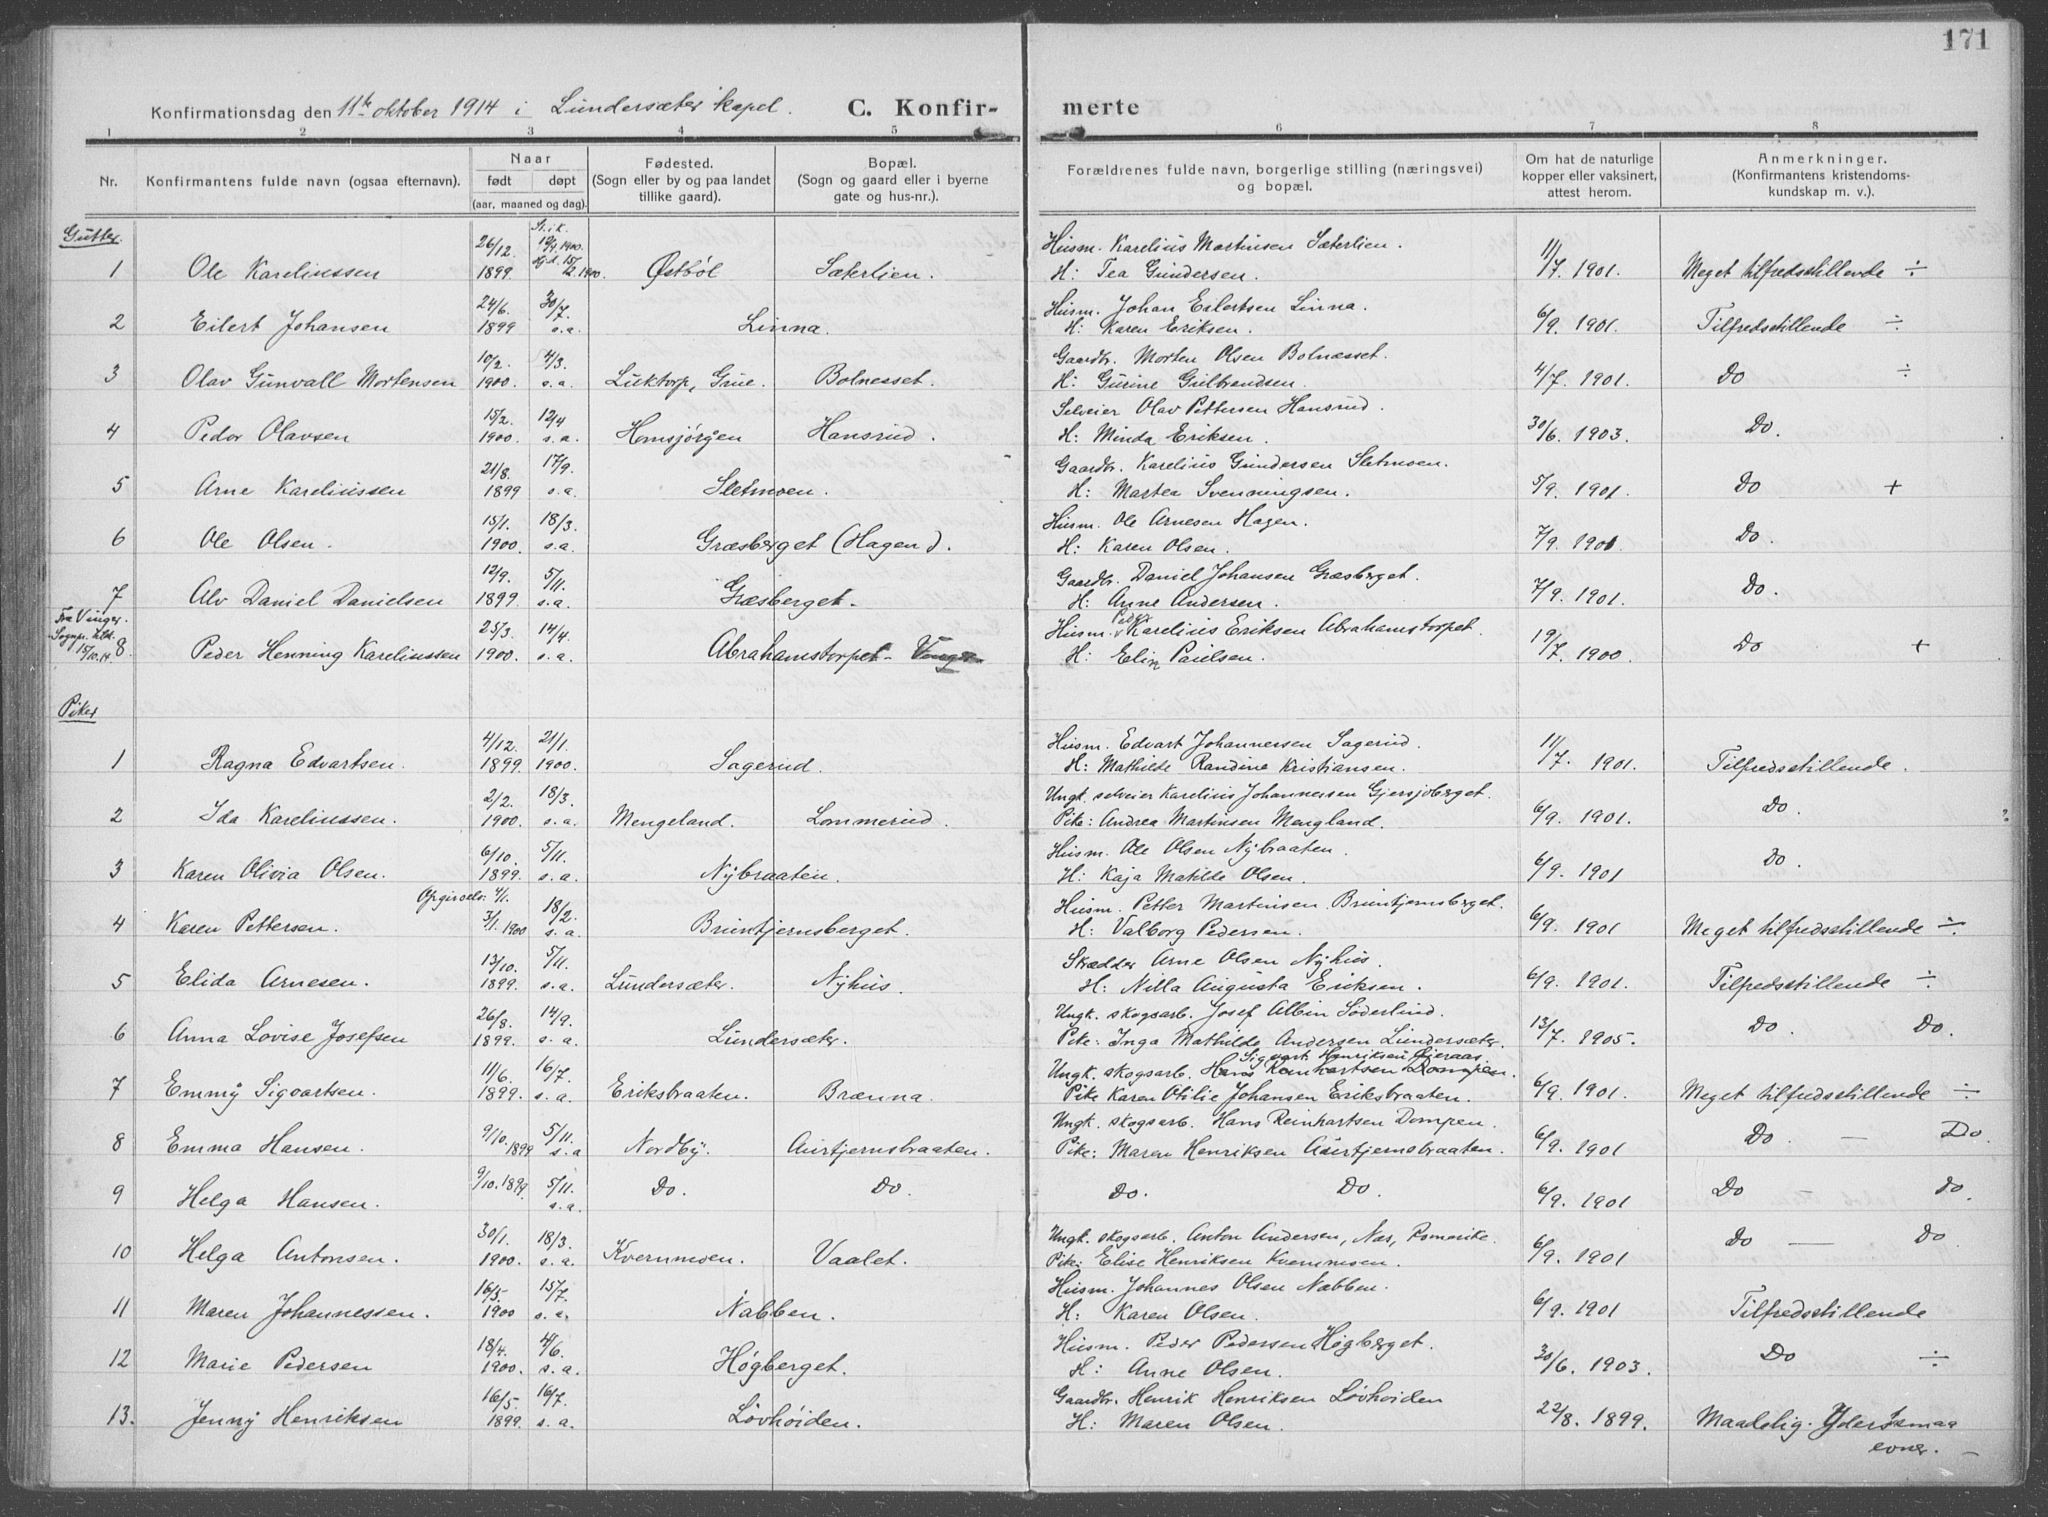 171
Konfirmationsdag den 11te oktober 1914 i Lundersæter kapel. C. Konfirmerte
1 2 3 4 5 6 7 8
Nr. Konfirmantens fulde navn (ogsaa efternavn). Naar født døpt (aar, maaned og dag). Fødested. (Sogn eller by og paa landet tillike gaard). Bopæl. (Sogn og gaard eller i byerne gate og hus-nr.). Forældrenes fulde navn, borgerlige stilling (næringsvei) og bopæl. Om hat de naturlige kopper eller vaksinert, attest herom. Anmerkninger. (Konfirmantens kristendoms-kundskap m. v.).
Gutter.
26/12. 19/4 1900. Husm. Karelius Martinsen Sæterlien.
1 Ole Kareliussen 1899 Østbøl Sæterlien. H: Tea Gundersen. 11/7. 1901. Meget tilfredsstillende ÷
24/6. 30/7. Husm. Johan Eilertsen Linna.
2 Eilert Johansen 1899 s.a. Linna. H: Karen Eriksen. 6/9. 1901. Tilfredsstillende ÷
10/2. 4/3. Gaardbr. Morten Olsen Bolnesset.
3 Olav Gunvall Mortensen 1900. s.a. Luktorp, Grue. Bolnesset. H: Gurine Gulbrandsen. 4/7. 1901. Do ÷
15/2. 12/4 Selveier Olav Pettersen Hansrud.
4 Peder Olavsen 1900. s.a. Homsjørgen Hansrud. H: Minda Eriksen. 30/6. 1903. Do.
21/8. 17/9. Gaardbr. Karelius Gundersen Sletmoen.
5 Arne Kareliussen 1899 s.a. Sletmoen. H: Martea Svenningsen. 5/9. 1901. Do +
15/1. 18/3. Husm. Ole Arnesen Hagen.
6 Ole Olsen. 1900. s.a. Græsberget (Hagen). H: Karen Olsen. 7/9. 1901. Do.
12/9. 5/11. Gaardbr. Daniel Johansen Græsberget.
7 Alv Daniel Danielsen 1899 s.a. Græsberget. H: Anne Andersen. 7/9. 1901. Do.
Fra Vinger. Sognpr. 15/10.14. 25/3. 14/4. Husm. Karelius Eriksen Abrahamstorpet.
8 Peder Henning Kareliussen 1900. s.a. Abrahamstorpet - Vinger H: Elin Paulsen. 19/7. 1900. Do +
Piker
4/12. 21/1. Husm. Edvart Johannersen Sagerud.
1 Ragna Edvartsen. 1899. 1900. Sagerud. H: Mathilde Randine Kristiansen. 11/7. 1901. Tilfredsstillende.
2/2. 18/3. Ungk. selveier Karelius Johannessen Gjersjøberget.
2 Ida Kareliussen. 1900. s.a. Mengeland. Lommerud. Pike: Andrea Martinsen Mengland. 6/9. 1901. Do.
6/10. 5/11. Husm. Ole Olsen Nybraaten.
3 Karen Olivia Olsen. 1899. s.a. Nybraaten. H: Kaja Matilde Olsen. 6/9. 1901 Do.
Opgivelse: 4/1. 18/2. Husm. Petter Martinsen Bruntjernsberget.
4 Karen Pettersen. 3/1. 1900 s.a. Bruntjernsberget. H: Valborg Pedersen. 6/9. 1901 Meget tilfredsstillende ÷
13/10. 5/11. Skrædder Arne Olsen Nyhus.
5 Elida Arnesen. 1899. s.a. Lundersæter. Nyhus. H: Nilla Augusta Eriksen. 6/9. 1901. Tilfredsstillende ÷
26/8. 14/9. Ungk. skogsarb. Josef Albin Söderlind.
6 Anna Lovise Josefsen 1899. s.a. Lundersæter. Pike: Inga Mathilde Andersen Lundersæter. 13/7. 1905. Do. Do.
11/6. 16/7. Ungk. skogsarb. Sigvart Henriksen Hans Reinhartsen Dompen.
7 Emmy Sigvartsen. 1899. s.a. Eriksbraaten. Brænna. Pike Karen Otilie Johansen Eriksbraaten. 6/9. 1901. Meget tilfredsstillende ÷
9/10. 5/11. Ungk. skogsarb. Hans Reinhartsen Dompen.
8 Emma Hansen. 1899 s.a Nordby. Aurtjernsbraaten. Pike: Maren Henriksen Aurtjernsbraaten. 6/9. 1901 Do — Do.
9 Helga Hansen. 9/10. 1899. 5/11. s.a. Do. Do. Do. Do. 6/9. 1901 Do — Do.
30/1. 18/3. Ungk. skogsarb. Anton Andersen, Næs, Romerike.
10 Helga Antonsen. 1900. s.a. Kvernmoen. Vaalet. Pike: Elise Henriksen Kvernmoen. 6/9. 1901 Do — Do
16/5. 15/7. Husm. Johannes Olsen Nabben.
11 Maren Johannessen. 1900 s.a. Nabben. H: Karen Olsen. 6/9. 1901 Tilfredsstillende
18/4. 4/6. Husm. Peder Pedersen Høgberget.
12 Marie Pedersen 1900. s.a. Høgberget. H: Anne Olsen. 30/6. 1903. Do ÷
16/5. 16/7. Gaardbr. Henrik Henriksen Lövhöiden
13. Jenny Henriksen 1899. s.a. Lövhöiden. H: Maren Olsen. 22/8. 1899. Maadelig. Yderst smaa evner. —